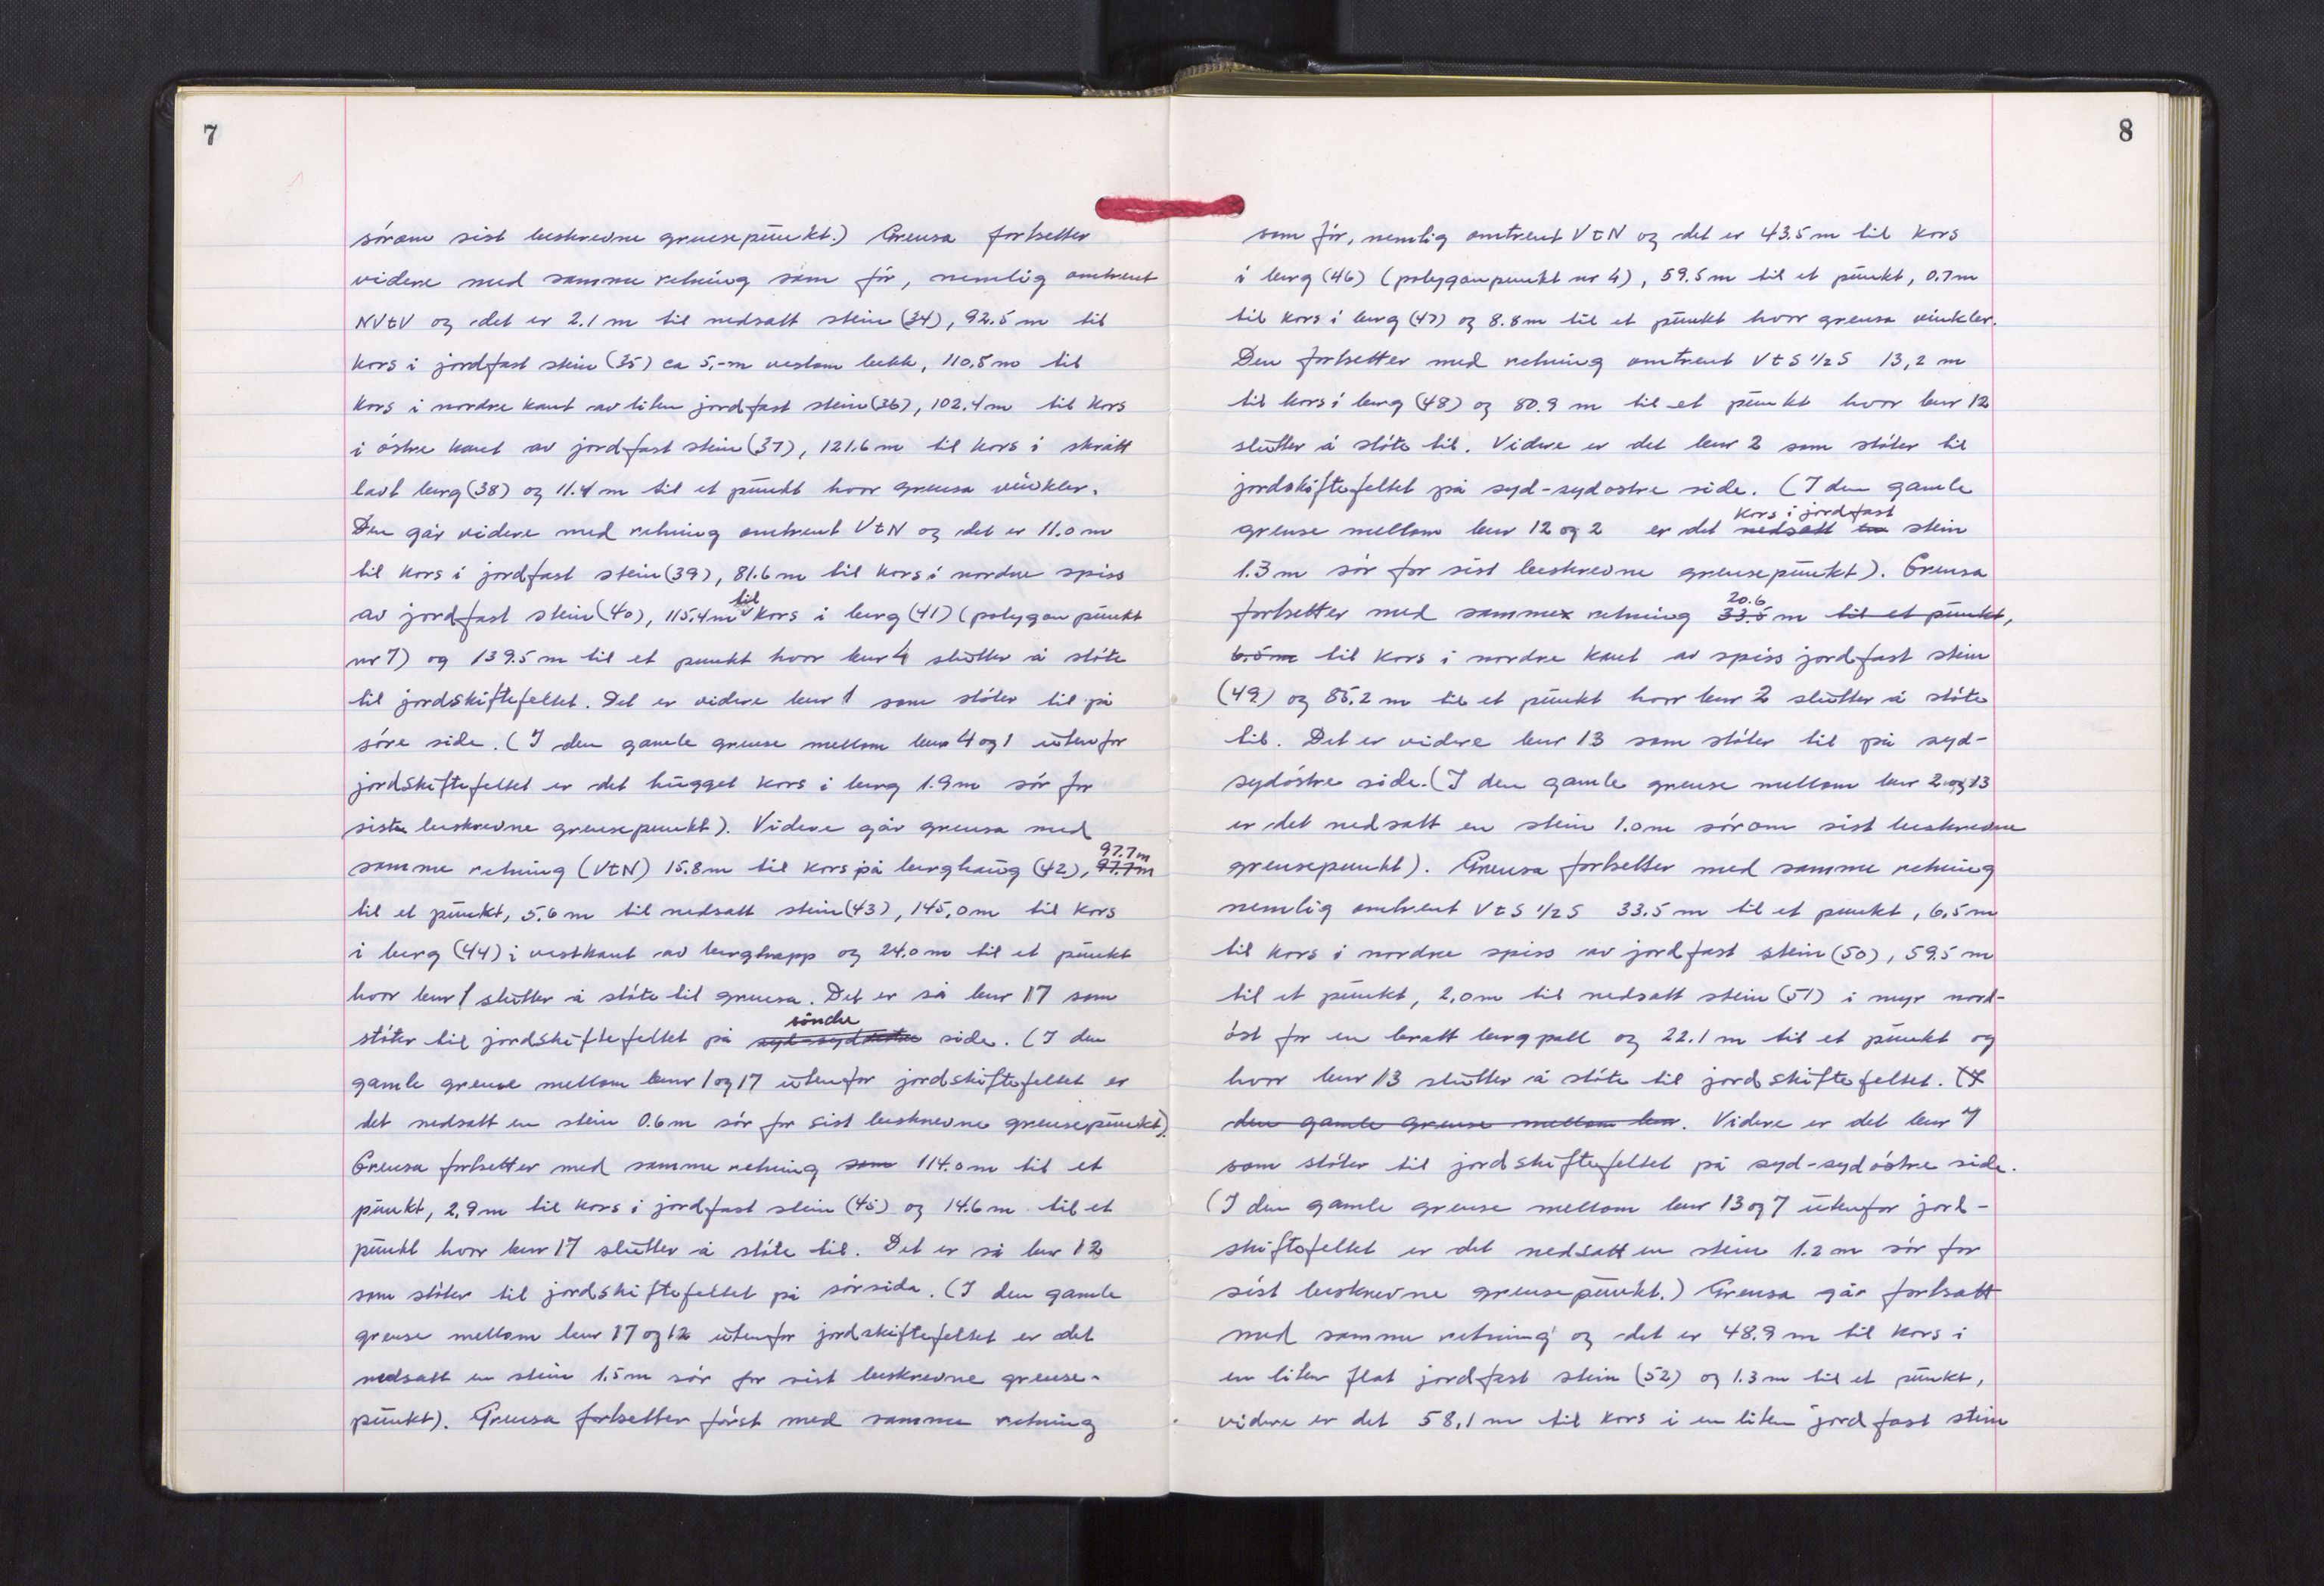 7
søraom sist beskrevne grensepunkt.) Grensa fortsetter
videre med samme retning som før, nemlig omtrent
NVtV og det er 2.1 m til nedsatt stein (34), 92.5 m til
kors i jordfast stein (35) ca 5,-m vestom bekk, 110.5 m til
kors i nordre kant av liten jordfast stein (36), 102.4 m til kors
i østre kant av jordfast stein (37), 121.6 m til kors i skrått
lavt berg (38) og 11.4 m til et punkt hvor grensa vinkler.
Den går videre med retning omtrent VtN og det er 11.0 m
til kors i jordfast stein (39), 81.6 m til kors i nordre spiss
av jordfast stein (40), 115.4 m til kors i berg (41) (polygonpunkt
nr 7) og 139.5 m til et punkt hvor bnr 4 slutter å støte
til jordskiftefeltet. Det er videre bnr 1 som støter til på
søre side. (I den gamle grense mellom bnr 4 og 1 utenfor
jordskiftefeltet er det hugget kors i berg 1.9 m sør for
siste beskrevne grensepunkt). Videre går grensa med
samme retning (VtN) 15.8 m til kors på berghaug (42), 97.7 m 97.7 m
til et punkt, 5.6 m til nedsatt stein (43), 145,0 m til kors
i berg (44) i vestkant av bergknapp og 24.0 m til et punkt
hvor bnr 1 slutter å støte til grensa. Det er så bnr 17 som
støter til jordskiftefeltet på syd-sydøstre søndre side. (I den
gamle grense mellom bnr 1 og 17 utenfor jordskiftefeltet er
det nedsatt en stein 0.6 m sør for sist beskrevne grensepunkt).
Grensa fortsetter med samme retning som 114.0 m til et
punkt, 2,9 m til kors i jordfast stein (45) og 14.6 m til et
punkt hvor bnr 17 slutter å støte til. Det er så bnr 12
som støter til jordskiftefeltet på sørsida. (I den gamle
grense mellom bnr 17 og 12 utenfor jordskiftefeltet er det
nedsatt en stein 1.5 m sør for sist beskrevne grense-
punkt). Grensa fortsetter først med samme retning
8
som før, nemlig omtrent VtN og det er 43.5 m til kors
i berg (46) (polygonpunkt nr 4), 59.5 m til et punkt, 0.7 m
til kors i berg (47) og 8.8 m til et punkt hvor grensa vinkler.
Den fortsetter med retning omtrent VtS 1/2 S 13,2 m
til kors i berg (48) og 80.9 m til et punkt hvor bnr 12
slutter å støte til. Videre er det bnr 2 som støter til
jordskiftefeltet på syd-sydøstre side. (I den gamle
grense mellom bnr 12 og 2 er det nedsatt en kors i jordfast stein
1.3 m sør for sist beskrevne grensepunkt). Grensa
fortsetter med samme retning 33.5 20.6 m til et punkt,
6.5 m til kors i nordre kant av spiss jordfast stein
(49) og 85,2 m til et punkt hvor bnr 2 slutter å støte
til. Det er videre bnr 13 som støter til på syd-
sydøstre side. (I den gamle grense mellom bnr 2 og 13
er det nedsatt en stein 1.0 m sørom sist beskrevne
grensepunkt). Grensa fortsetter med samme retning
nemlig omtrent VtS 1/2 S 33.5 m til et punkt, 6,5 m
til kors i nordre spiss av jordfast stein (50), 59.5 m
til et punkt, 2,0 m til nedsatt stein (51) i myr nord-
øst for en bratt bergpall og 22.1 m til et punkt og
hvor bnr 13 slutter å støte til jordskiftefeltet. (I
den gamle grense mellom bnr. Videre er det bnr 7
som støter til jordskiftefeltet på syd-sydøstre side.
(I den gamle grense mellom bnr 13 og 7 utenfor jord-
skiftefeltet er det nedsatt en stein 1.2 m sør for
sist beskrevne grensepunkt.) Grensa går fortsatt
med samme retning og det er 48.9 m til kors i
en liten flat jordfast stein (52) og 1.3 m til et punkt,
videre er det 58,1 m til kors i en liten jordfast stein